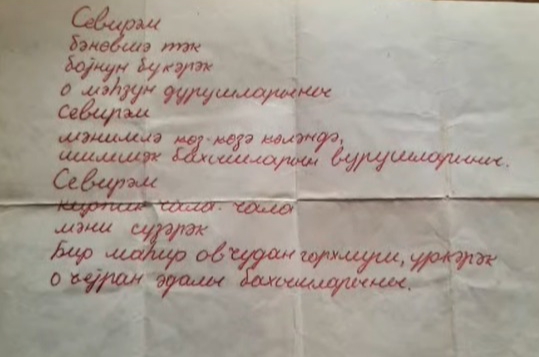 Севирәм
бәнөвшә тәк
бојнун бүкәрәк
о мәһзун дурушларыны
Севирәм
мәнимлә көз-көзә кәләндә,
шимшәк бахышларын вурушларыны.
Севирәм
кирпик чала-чала
мәни сүзәрәк
Бир маһир овчудан горхмуш, үркәрәк
о ҹејран әдалы бахышларыны.